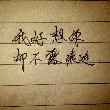 我好想你
却不露痕迹